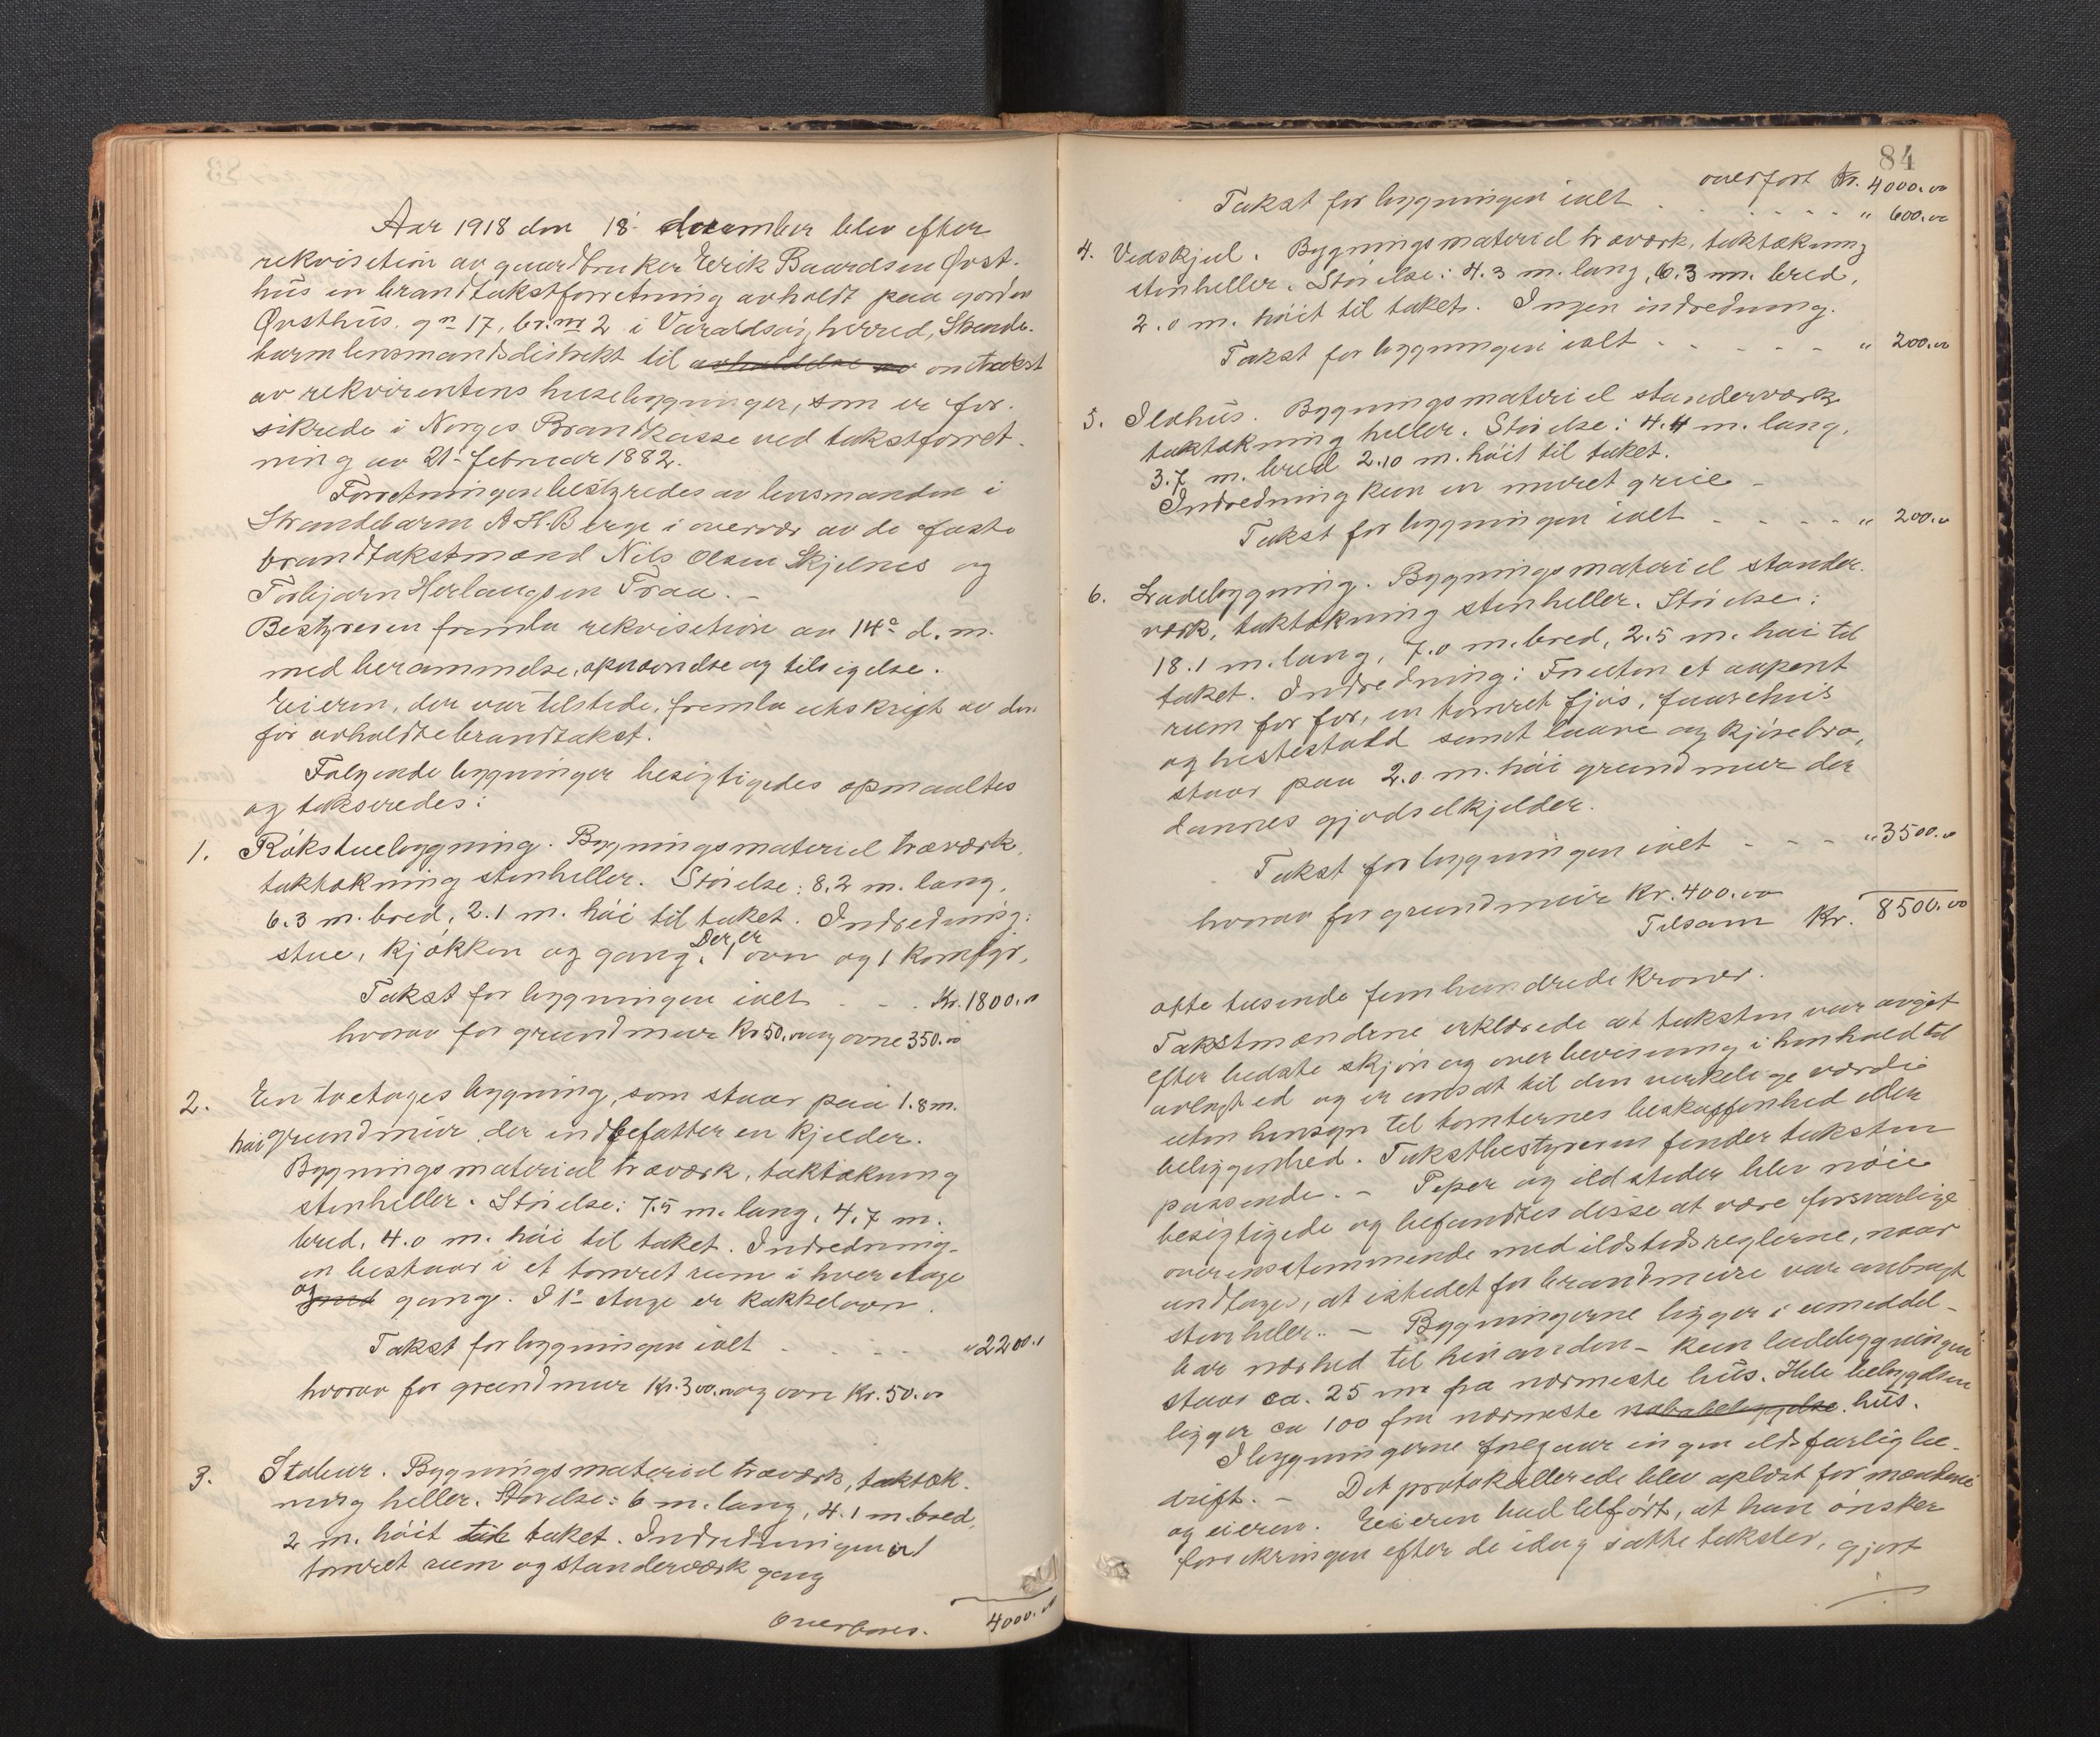 Aar 1918 den 18 december blev efter
rekvisition av gaardbruker Erik Baardsen Øvst-
hus en brandtakstforretning avholdt paa gorden
Øvsthus, gn 17, br.nr 2 i Varaldsøy herred, Strande-
barm lensmandsdistrikt til avholdelse av omtakst
av rekvirentens husebygninger, som er for-
sikrede i Norges Brandkasse ved takstforret-
ning av 21 februar 1882.
Forretningen bestyredes av lensmanden i
Strandebarm A H. Berge i overvær av de faste
brandtakstmænd Nils Olsen Skjelnes og
Torbjørn Herlaugsen Traa. –
Bestyreren fremla rekvisition av 14de d.m.
med berammelse, opnævnelse og tilsigelse.
Eieren, der var tilstede, fremla utskrift av den
før avholdte brandtakst.
Følgende bygninger besigtigedes opmaaltes
og takseredes:
1. Røkstuebygning. Bygningsmateriel træverk,
taktækning stenheller. Størelse: 8,2 m. lang,
6.3 m. bred, 2.1 m. høi til taket. Indredning:
stue, kjøkken og gang. Der er 1 ovn og 1 komfyr.
Takst for bygningen ialt - - - Kr. 1800.00
hvorav for grundmur Kr 50.00 og ovne 350.00
2. En toetages bygning, som staar paa 1.8 m.
høi grundmur, der indbefatter en kjelder.
Bygningsmateriel træverk, taktækning
stenheller. Størelse: 7.5 m. lang, 4.7 m.
bred, 4.0 m. høi til taket. Indredning-
en bestaar i et tømret rum i hver etage
og med gang. I 1ste etage er kakkelovn.
Takst for bygningen ialt - - - - " 2200.00
hvorav for grundmur Kr. 300.00 og ovn Kr. 50.00
3. Stabur. Bygningsmateriel træverk, taktæk-
ning heller. Størelse: 6 m. lang, 4.1 m. bred,
2 m. høit til taket. Indredningen er 1
tømret rum og standerværk gang
Overføres. 4000.00
84
overført Kr. 4000.00
Takst for bygningen ialt - - - - - " 600.00
4. Vedskjul. Bygningsmateriel træværk, taktækning
stenheller. Størelse: 4.3 m. lang, 6.3 m. bred,
2.0 m. høit til taket. Ingen indredning.
Takst for bygningen ialt - - - - - " 200.00
5. Ildhus. Bygningsmateriel standerværk
taktækning heller. Størelse: 4.4 m. lang,
3.7 m. bred 2.10 m. høit til taket.
Indredning kun en muret grue -
Takst for bygningen ialt - - - - " 200.00
6. Ladebygning. Bygningsmateriel stander-
værk, taktækning stenheller. Størelse:
18.1 m. lang, 7.0 m. bred, 2.5 m. høi til
taket. Indredning: Foruten et aapent
rum for for, en tømret fjøs, faarehus
og hestestald samt laave og kjørebro,
staar paa 2.0 m. høi grundmur der
dannes gjødselkjelder.
Takst for bygningen ialt - - - " 3500.00
hvorav for grundmur Kr. 400.00
Tilsam Kr. 8500.00
otte tusende femhundrede kroner.
Takstmændene erklærede at taksten var avgit
efter bedste skjøn og overbevisning i henhold til
avlagt ed og er ansat til den virkelige værdi
uten hensyn til tomternes beskaffenhed eller
beliggenhed. Takstbestyreren finder taksten
passende. – Piper og ildsteder blev nøie
besigtigede og befandtes disse at være forsvarlige
overensstemmende med ildstedsreglerne, naar
undtages, at istedet for brandmure var anbragt
stenheller. – Bygningerne ligger i umiddel-
bar nærhed til hinanden – kun ladebygningen
staar ca. 25 m. fra nærmeste hus. Hele bebyggelsen
ligger ca 100 fra nærmeste nabobebyggelse. hus.
I bygningerne foregaar ingen ildsfarlig be-
drift. – Det protokollerede blev oplæst for mændene
og eieren. Eieren bad tilført, at han ønsker
forsikringen efter de idag satte takster, gjort